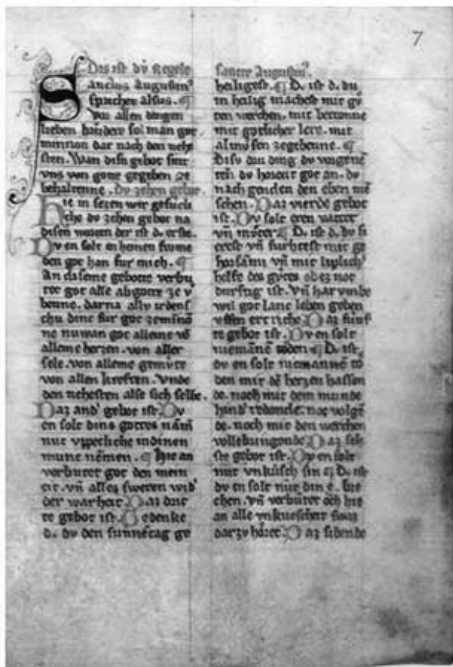 7
Dis ist dv́ Regele
Sanctus Augustinꝰ
sprichet alsus. ¶
Vor allen dingen
lieben brudere sol man got
minnon dar nach den nehs
sten. Wan disv́ gebot sint
vns von gotte gegeben ze
behaltenne. Dv́ zehen gebot
Hie in sezen wir
dv́ zehen gebot na
disen worten der ist dˢ erste.
Dv en solt en heinen frome
den got han fur mich. ¶
An diseme gebotte verbu
tet got alle abgotte ze v
benne. darna
fur got
ne nuwan got alleine vō
alleme herzen. von aller
sele. von alleme gemv̊te
von allen kreften. Vnde
den nehesten alse sich selbē.
Daz andˢ gebot ist. Dv
en solt dins gottes nam̄
nut vppekliche in dinen
munt nemen. ¶ Hie an
verbutet got den mein
eit. vn̄ alles sweren widˢ
der warheit. Daz drit
te gebot ist. Gedenke
d. dv den sunnētag ge
sancte Augustinꝰ.
heiligest. ¶ D. ist d. du
in heilig machest mit gv̊
ten werchen. mit bettonne
mit gotlicher lere. mit
almv̊sen zegebenne. ¶
Disv́ drv́ ding
got an. dv́
nach genden den eben mē
schen. Daz vierde gebot
ist. Dv solt eren vatter
vn̄ mv̊ter. ¶ D. ist. d. dv si
erest vn̄ furhtest mit ge
horsami vn̄ mit liplich
helfe des gv̊tes obez not
durftig ist. vn̄ har vmbe
wil got lanc leben geben
vffen ertriche. Daz funf
te gebot ist. Dv en solt
niemanne toden. ¶ D. ist.
dv en solt niemanne to
den mit dē herzen hasson
de. noch mit dem munde
noch mit den werchen
vollebringonde. Daz seh
ste gebot ist. Dv en solt
nut vnkusch sin. ¶ D. ist
dv en solt nut din e. bre
chen. vn̄ verbutet och hie
an alle vnkuscheit swaz
darzv̊ hoͤret. Daz sibende